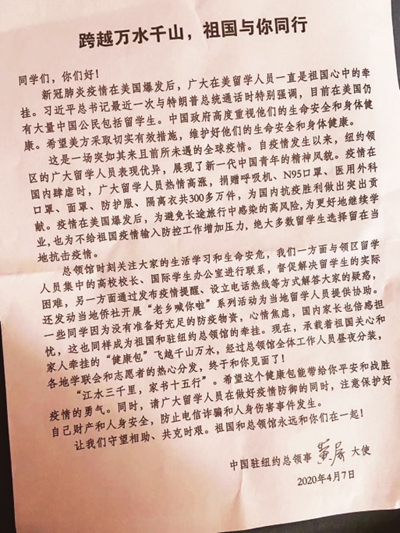 跨越万水千山，祖国与你同行
同学们，你们好！
新冠肺炎疫情在美国爆发后，广大在美留学人员一直是祖国心中的牵
挂。习近平总书记最近一次与特朗普总统通话时特别强调，目前在美国仍
有大量中国公民包括留学生。中国政府高度重视他们的生命安全和身体健
康。希望美方采取切实有效措施，维护好他们的生命安全和身体健康。
这是一场突如其来且前所未遇的全球疫情。自疫情发生以来，纽约领
区的广大留学人员表现优异，展现了新一代中国青年的精神风貌。疫情在
国内肆虐时，广大留学人员热情高涨，捐赠呼吸机、N95口罩、医用外科
口罩、面罩、防护服、隔离衣共300多万件，为国内抗疫胜利做出突出贡
献。疫情在美国爆发后，为避免长途旅行中感染的高风险，为更好地继续学
业，也为不给祖国疫情输入防控工作增加压力，绝大多数留学生选择留在当
地抗击疫情。
总领馆时刻关注大家的生活学习和生命安危，我们一方面与领区留学
人员集中的高校校长、国际学生办公室进行联系，督促解决留学生的实际
困难，另一方面通过发布疫情提醒、设立电话热线等方式解答大家的疑惑，
还发动当地侨社开展“老乡喊你啦”系列活动为当地留学人员提供协助。
一些同学因为没有准备好充足的防疫物资，心情焦虑，国内家长也倍感担
忧，这也同样成为祖国和驻纽约总领馆的牵挂。现在，承载着祖国关心和
家人牵挂的“健康包”飞越千山万水，经过总领馆全体工作人员昼夜分装，
各地学联会和志愿者的热心分发，终于和你见面了！
“江水三千里，家书十五行”。希望这个健康包能带给你平安和战胜
疫情的勇气。同时，请广大留学人员在做好疫情防御的同时，注意保护好
自己财产和人身安全，防止电信诈骗和人身伤害事件发生。
让我们守望相助、共克时艰。祖国和总领馆永远和你们在一起！
中国驻纽约总领事 黄屏 大使
2020年4月7日